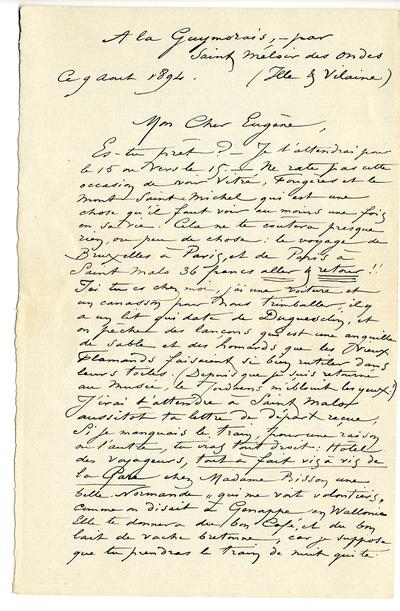 A la Guymorais, - par
Saint Méloir des Ondes
Ce 9 Aout 1894. (Ille & Vilaine)
Mon Cher Eugène,
Es-tu prêt ? - Je t'attendrai pour
le 15 ou vers le 15. - Ne rate pas cette
occasion de voir Vitré, Fougères et le
Mont Saint Michel qui est une
chose qu'il faut voir au moins une fois
en sa vie. Cela ne te coutera presque
rien, ou peu de chose : le voyage de
Bruxelles à Paris, et de Paris à
Saint Malo 36 francs aller & retour !!
Ici tu es chez moi, j'ai une voiture et
un canasson pour nous trimballer, il y
a un lit qui date de Duguesclin, et
on pêche des lançons qui est une anguille
de sable et des homards que les vieux
Flamands faisaient si bien rutiler dans
leurs toiles. (Depuis que je suis retourné
au Musée, le m'éblouit les yeux !)
J'irai t'attendre à Saint Malo,
aussitot ta lettre de départ reçue,
Si je manquais le train, pour une raison
ou l'autre, tu iras tout droit : Hotel
des voyageurs, tout à fait vis à vis de
la Gare - chez Madame Bisson une
belle Normande „qui me voit volontiers„
comme on disait à Genappe en Wallonie
Elle te donnera du bon Café, et du bon
lait de vache bretonne, car je suppose
que tu prendras le train de nuit qui te